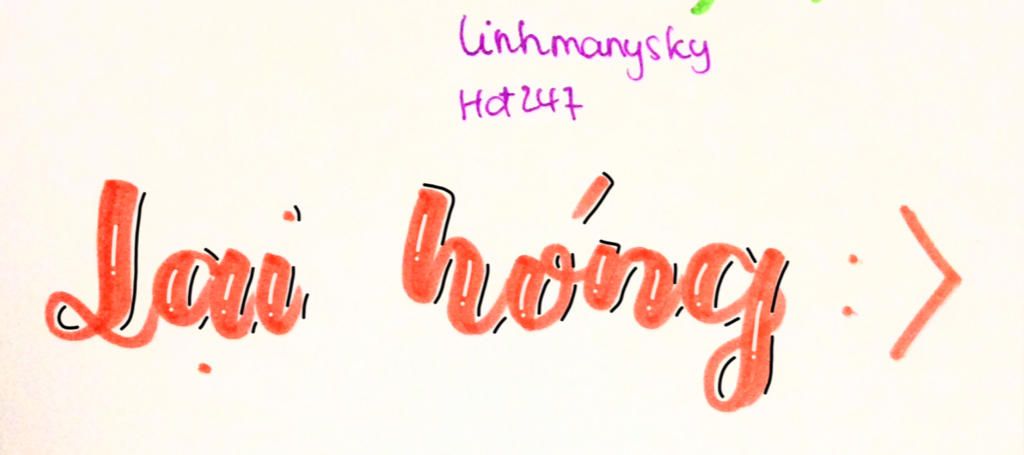 linhmanysky
Hot247
Lại hóng :>